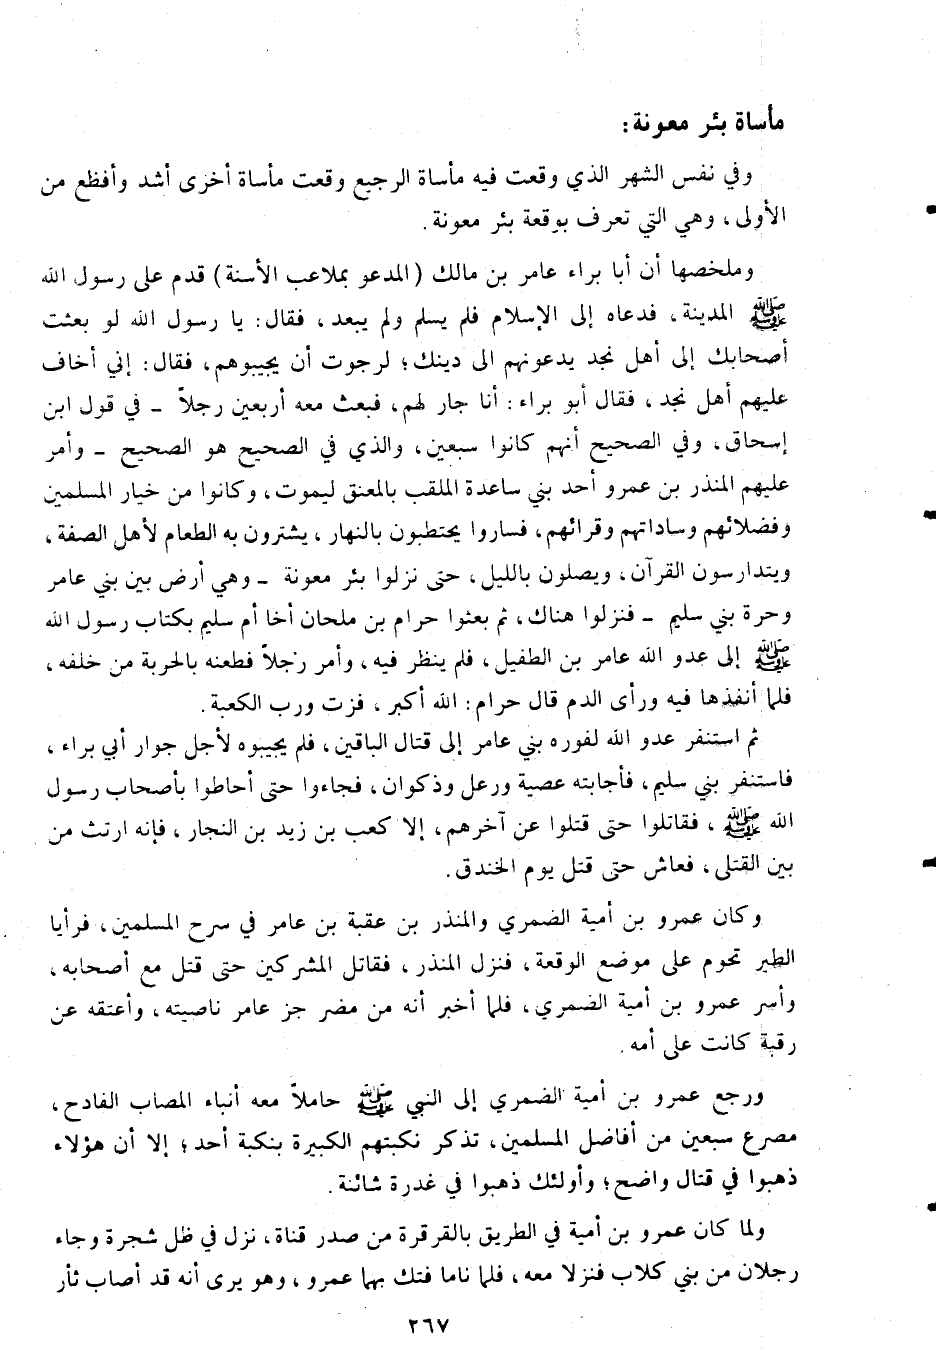 مأساة بئر معونة :
وفي نفس الشهر الذي وقعت فيه مأساة الرجيع وقعت مأساة أخرى أشد وأفظع من
الأولى ، وهي التي تعرف بوقعة بئر معونة .
وملخصها أن أبا براء عامر بن مالك ( المدعو بملاعب الأسنة ) قدم على رسول الله
ﷺ المدينة ، فدعاه إلى الإسلام فلم يسلم ولم يبعد ، فقال : يا رسول الله لو بعثت
أصحابك إلى أهل نجد يدعونهم الى دينك ؛ لرجوت أن يجيبوهم ، فقال : إني أخاف
عليهم أهل نجد ، فقال أبو براء : أنا جار لهم ، فبعث معه أربعين رجلاً ــ في قول ابن
إسحاق ، وفي الصحيح أنهم كانوا سبعين ، والذي في الصحيح هو الصحيح ــ وأمر
عليهم المنذر بن عمرو أحد بني ساعدة الملقب بالمعنق ليموت ، وكانوا من خيار المسلمين
وفضلائهم وساداتهم وقرائهم ، فساروا يحتطبون بالنهار ، يشترون به الطعام لأهل الصفة ،
ويتدارسون القرآن ، ويصلون بالليل ، حتى نزلوا بئر معونة ــ وهي أرض بين بني عامر
وحرة بني سليم ــ فنزلوا هناك ، ثم بعثوا حرام بن ملحان أخا أم سليم بكتاب رسول الله
ﷺ إلى عدو الله عامر بن الطفيل ، فلم ينظر فيه ، وأمر رجلاً فطعنه بالحربة من خلفه ،
فلما أنفذها فيه ورأى الدم قال حرام : الله أكبر ، فزت ورب الكعبة .
ثم استنفر عدو الله لفوره بني عامر إلى قتال الباقين ، فلم يجيبوه لأجل جوار أبي براء ،
فاستنفر بني سليم ، فأجابته عصية ورعل وذكوان ، فجاءوا حتى أحاطوا بأصحاب رسول
الله ﷺ ، فقاتلوا حتى قتلوا عن آخرهم ، إلا كعب بن زيد بن النجار ، فإنه ارتث من
بين القتلى ، فعاش حتى قتل يوم الخندق .
وكان عمرو بن أمية الضمري والمنذر بن عقبة بن عامر في سرح المسلمين ، فرأيا
الطير تحوم على موضع الوقعة ، فنزل المنذر ، فقاتل المشركين حتى قتل مع أصحابه ،
وأسر عمرو بن أمية الضمري ، فلما أخبر أنه من مضر جز عامر ناصيته ، وأعتقه عن
رقبة كانت على أمه .
ورجع عمرو بن أمية الضمري إلى النبي ﷺ حاملاً معه أنباء المصاب الفادح ،
مصرع سبعين من أفاضل المسلمين ، تذكر نكبتهم الكبيرة بنكبة أحد ؛ إلا أن هؤلاء
ذهبوا في قتال واضح ؛ وأولئك ذهبوا في غدرة شائنة .
ولما كان عمرو بن أمية في الطريق بالقرقرة من صدر قناة ، نزل في ظل شجرة وجاء
رجلان من بني كلاب فنزلا معه ، فلما ناما فتك بهما عمرو ، وهو يرى أنه قد أصاب ثأر
٢٦٧